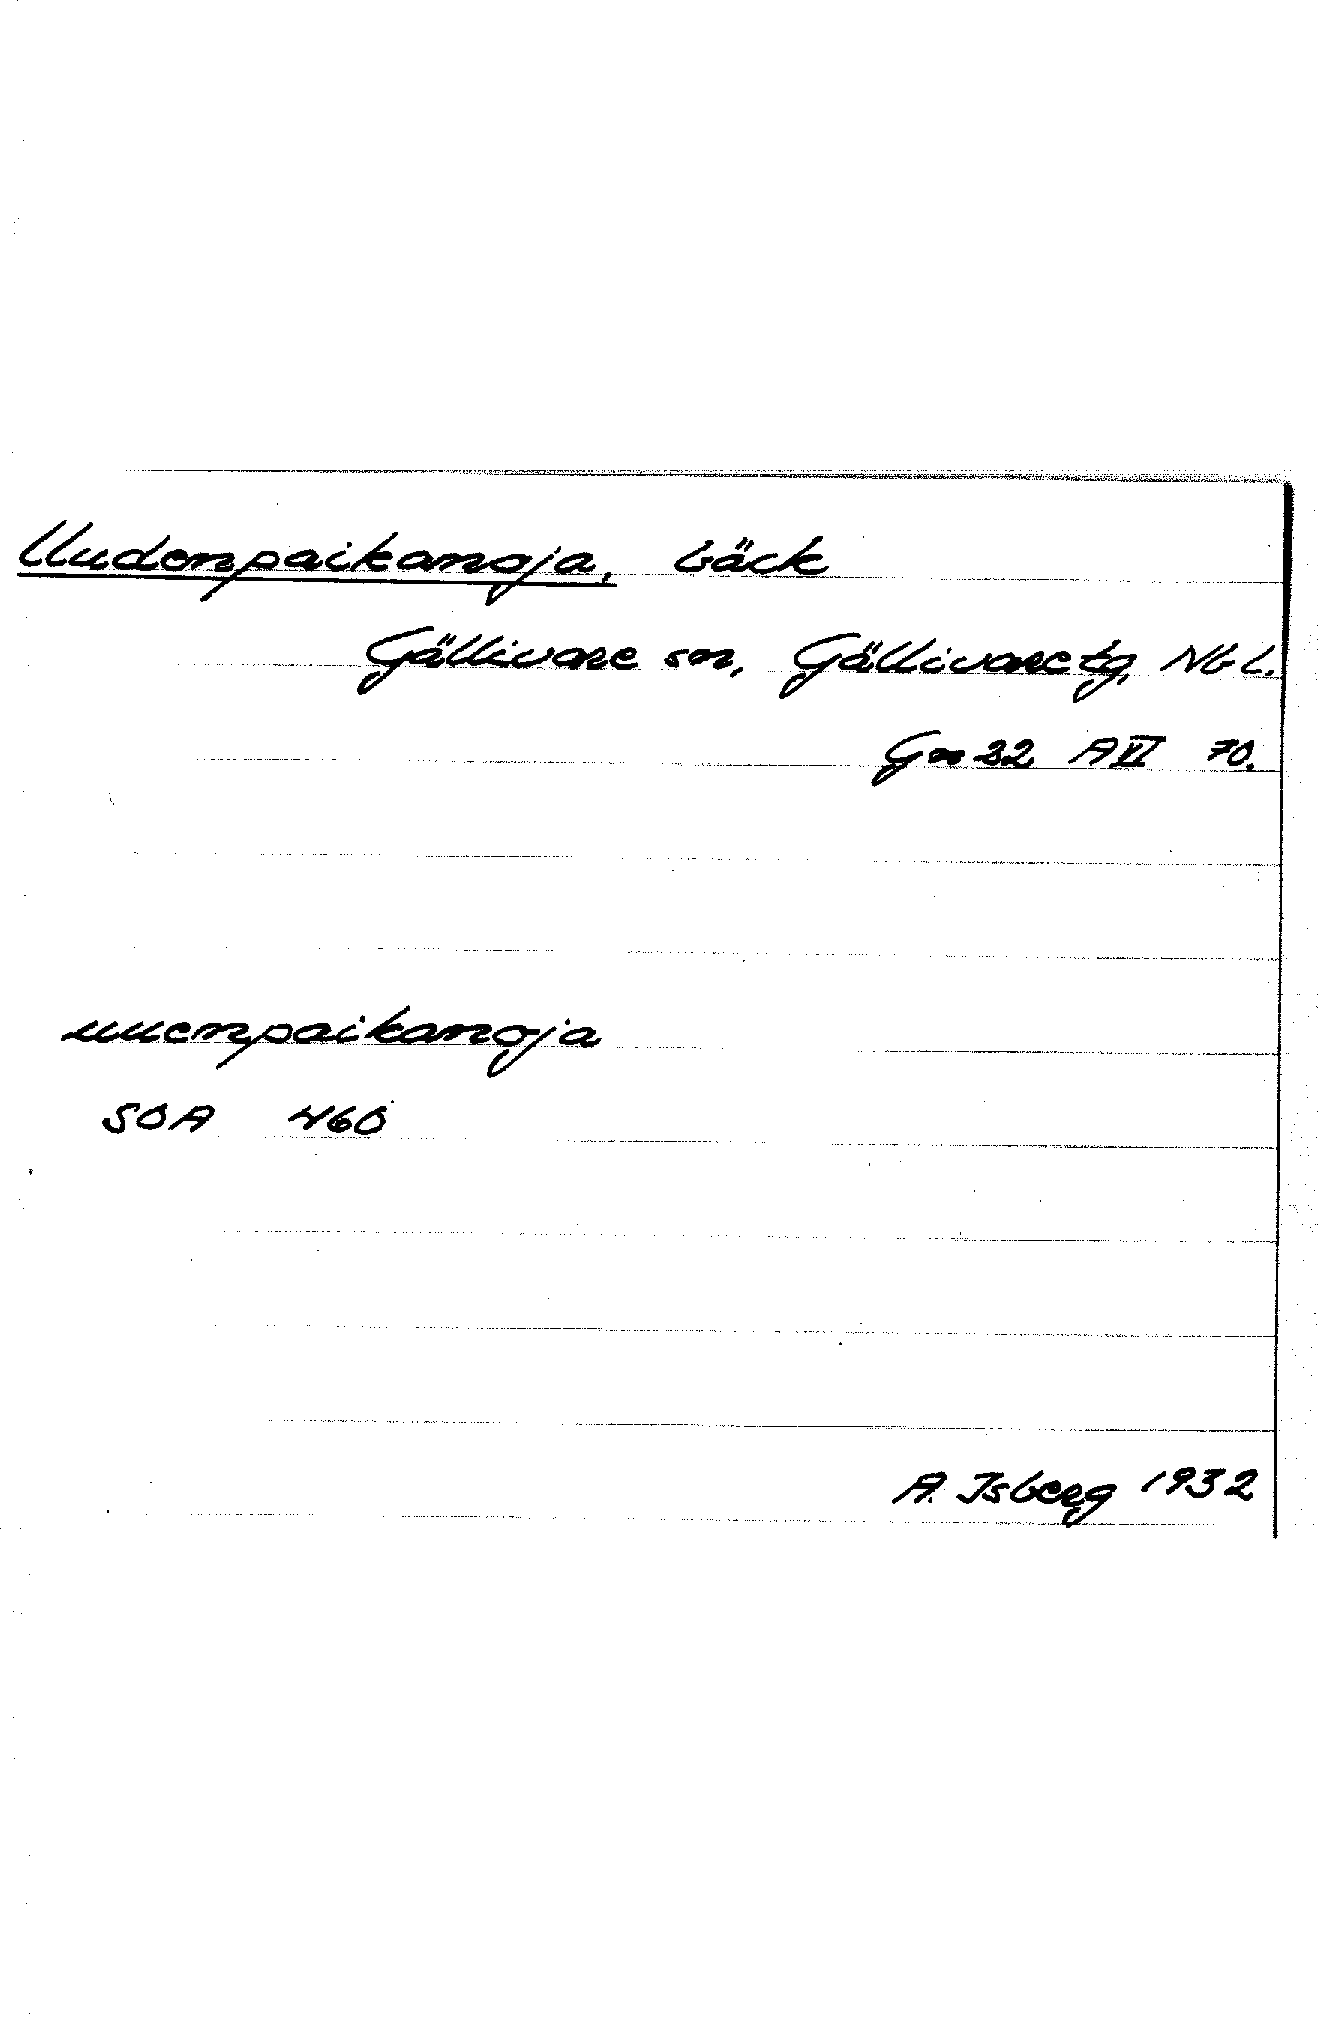 Uudenpaikanoja, bäck
Gällivare sn, Gällivare tg, Nb L.
Gm 32 A VI 70.
uuenpaikanoja
SOA 460
A. Isberg 1932